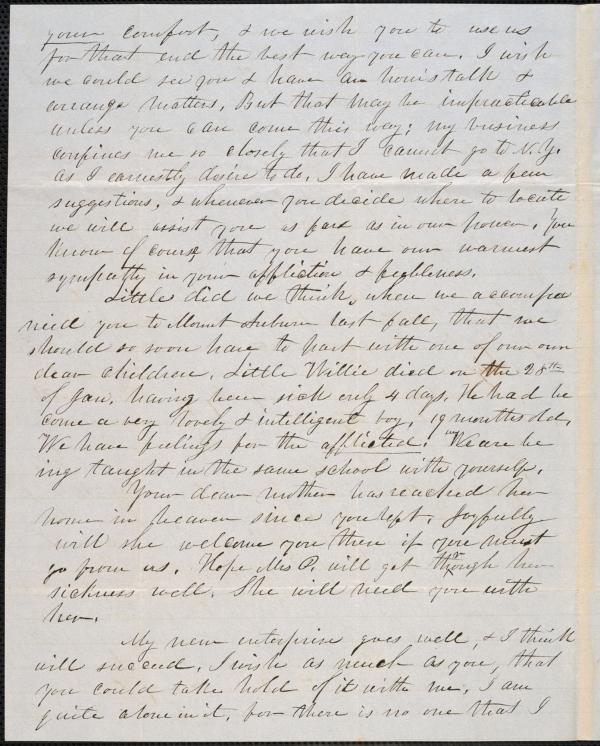 your comfort, & we wish you to use us
for that end the best way you can. I wish
we could see you & have an hour's talk &
arrange matters. But that may be impracticable
unless you can come this way; my business
confines me so closely that I cannot go to N.Y.
as I earnestly desire to do. I have made a few
suggestions, & whenever you decide where to locate
we will assist you as far as in our power. You
know of course that you have our warmest
sympathy in your affliction & feebleness.
Little did we think, when we accompa
nied you to Mount Auburn last fall, that we
should so soon have to part with one of our own
dear children. Little Willie died on the 28th
of Jan. having been sick only 4 days. He had be
come a very lovely & intelligent boy, 19 months old.
We have feelings for the afflicted. We are be
ing taught in the same school with yourself.
Your dear mother has reached her
home in heaven since you left. Joyfully
will she welcome you there if you must
go from us. Hope Mrs P. will get through her
sickness well. She will need you with
her.
My new enterprise goes well, & I think
will succeed. I wish as much as you, that
you could take hold of it with me. I am
quite alone in it, for there is no one that I